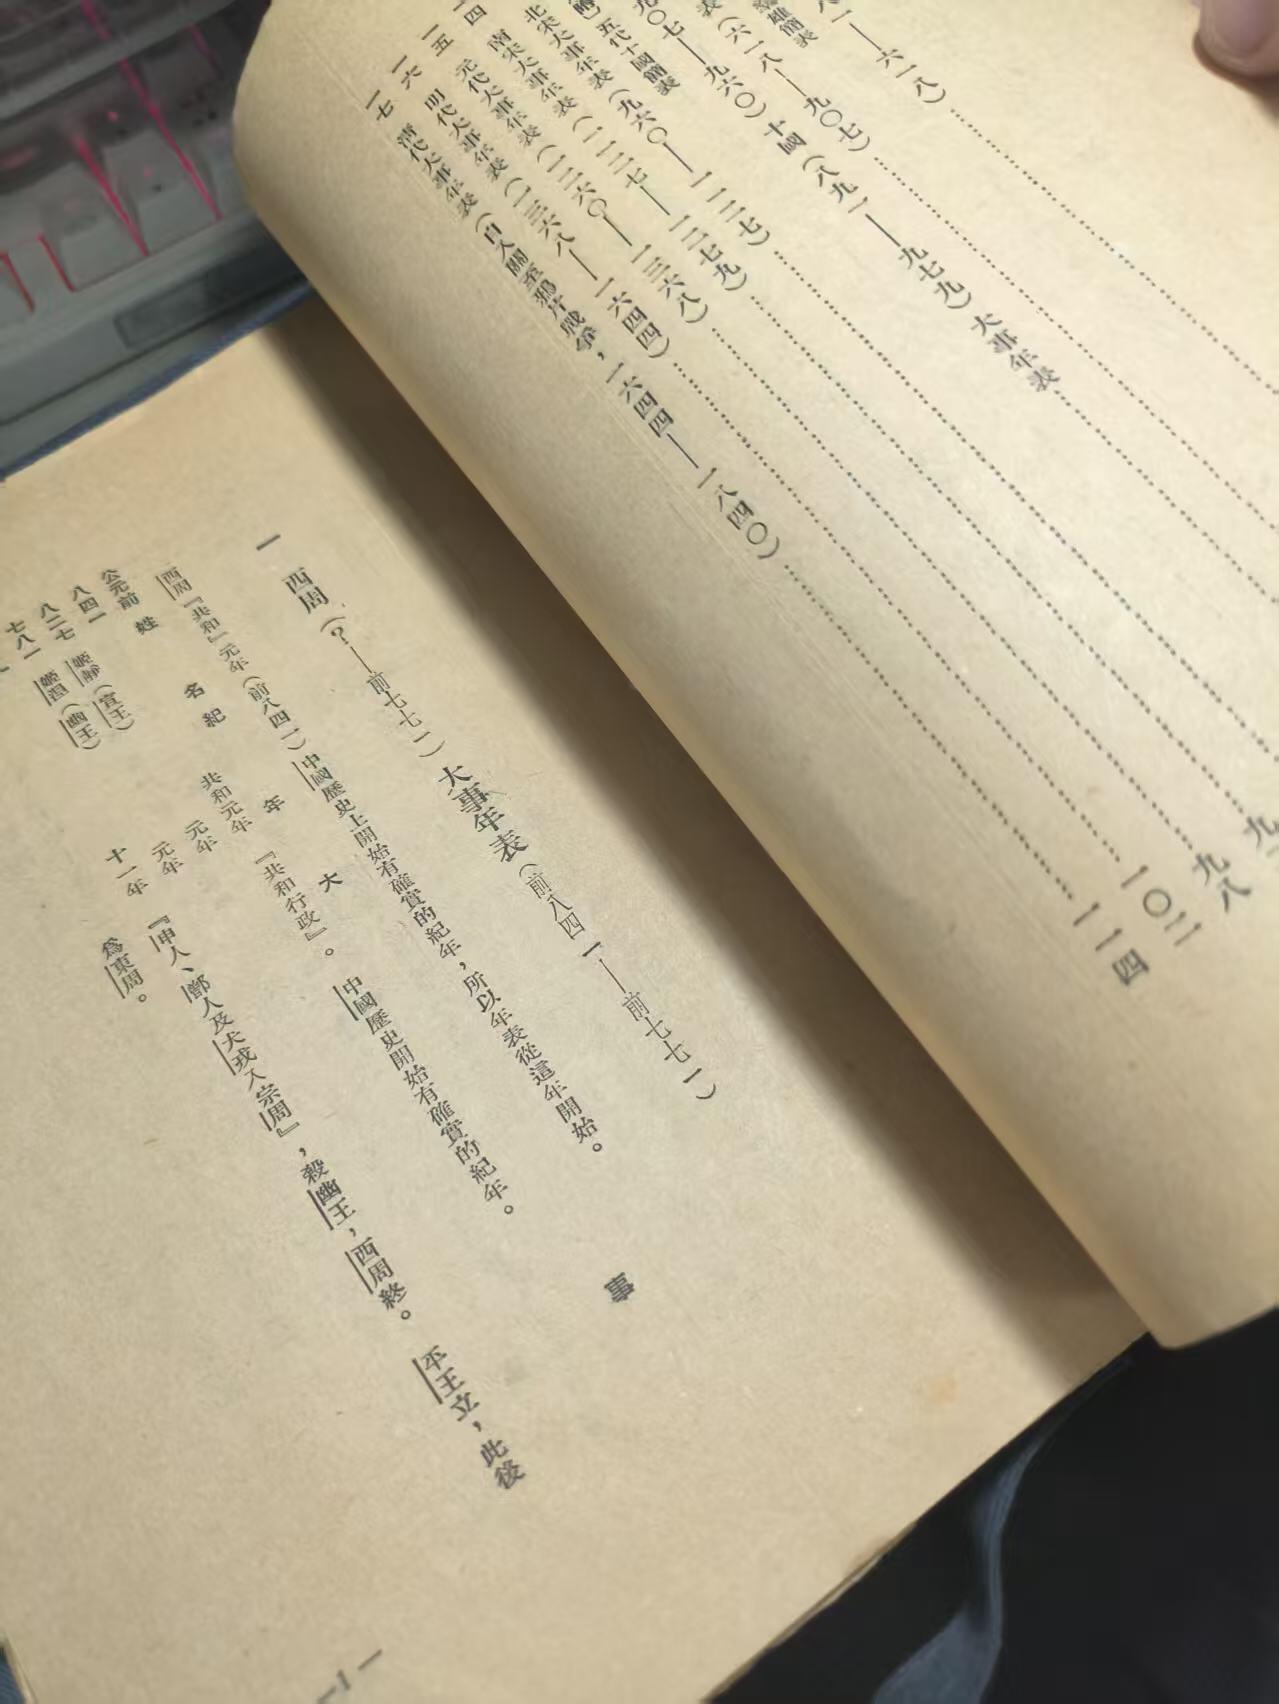 八一—六一八)
表(六一八—九〇七)
九〇七—九六〇)十國(八九一—九七九)大事年表
附 五代十國簡表
北宋大事年表(九六〇—一一二七)
南宋大事年表(一一二七—一二七九) 九八
一五 元代大事年表(一二六〇—一三六八)
一六 明代大事年表(一三六八—一六四四) 一〇二
一七 清代大事年表(自入關至鴉片戰爭,一六四四—一八四〇) 一一四
一 西周(?—前七七一)大事年表(前八四一—前七七一)
西周『共和』元年(前八四一)中國歷史上開始有確實的紀年,所以年表從這年開始。
公元前 姓 名 紀 年 大 事
八四一 共和元年 『共和行政』。 中國歷史開始有確實的紀年。
八二七 姬靜(宣王) 元年
七八一 姬湼(幽王) 元年
十一年 『申人、鄫人及犬戎入宗周』,殺幽王,西周終。 平王立,此後
為東周。
— 1 —